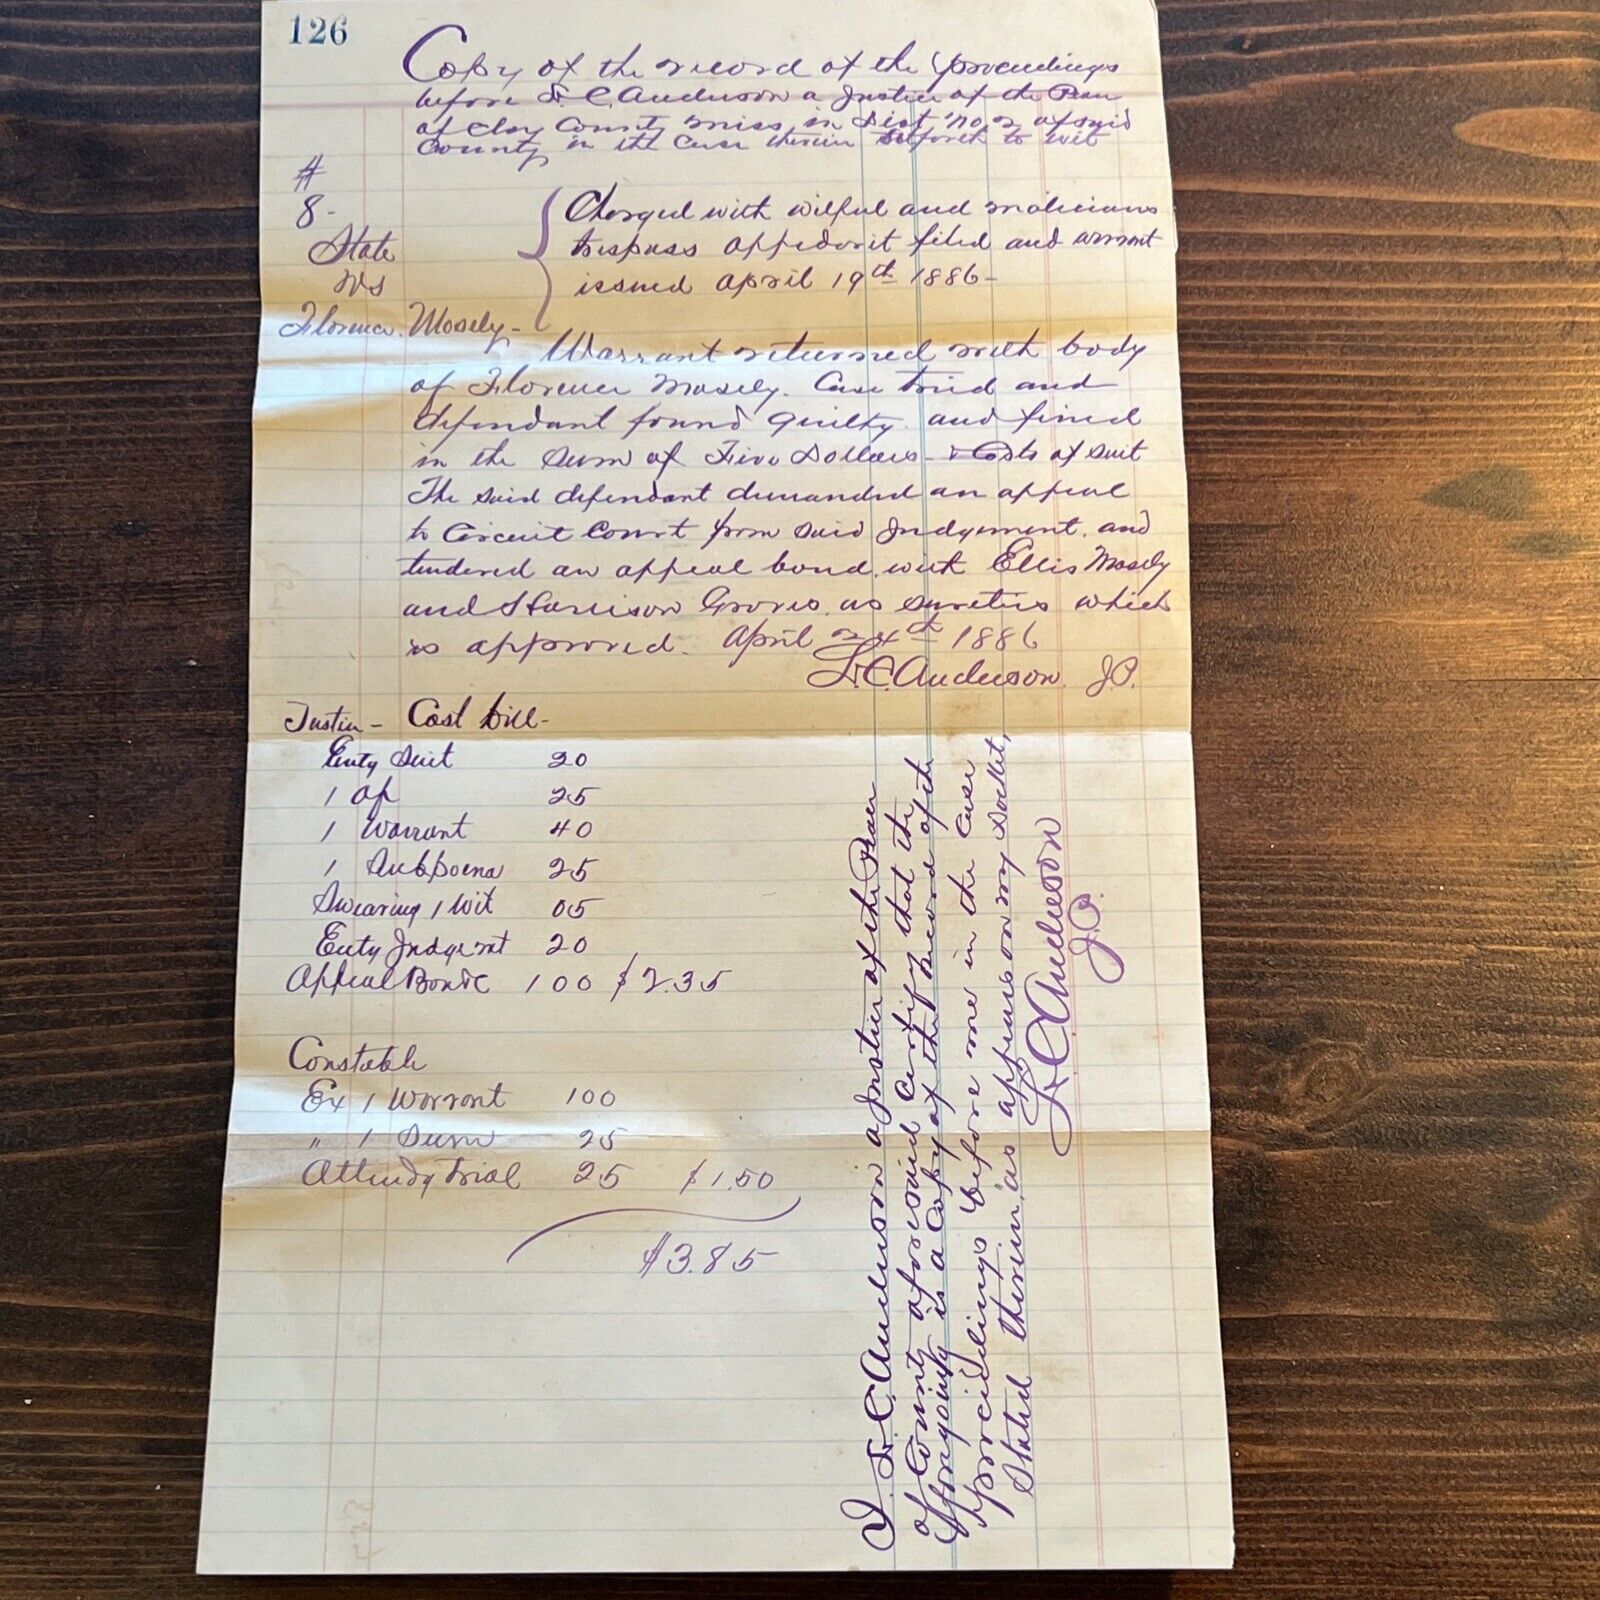 126
Copy of the record of the proceedings
before L.C. Anderson a Justice of the Peace
of Clay County Miss, in Dist No 2 of said
County, in the Case therein setforth to wit
#
8-
State
Vs
Florence Mosely-
Charged with wilful and malicious
trespass affidavit filed and warrant
issued April 19th 1886-
Warrant returned with body
of Florence Mosely. Case tried and
defendant found guilty and fined
in the sum of Five Dollars & Costs of suit
The said defendant demanded an appeal
to Circuit Court from said Judgement, and
tendered an appeal bond, with Ellis Mosely
and Harrison Groves, as sureties which
is approved. April 24th 1886
L.C. Anderson J.P.
Justice - Cost bill-
Enty Suit 20
1 af 25
1 Warrant 40
1 Subpoena 25
Swearing 1 Wit 05
Enty Judgemt 20
Appeal Bond 100 $2.35
Constable
Ex 1 Warrant 100
" 1 Sum 25
Attendg trial 25 $1.50
$3.85
I L.C. Anderson a Justice of the Peace
of County aforesaid Certify that the
foregoing is a Copy of the Record of the
proceedings before me in the Case
Stated therein, as appears on my Docket,
L.C. Anderson
J.P.